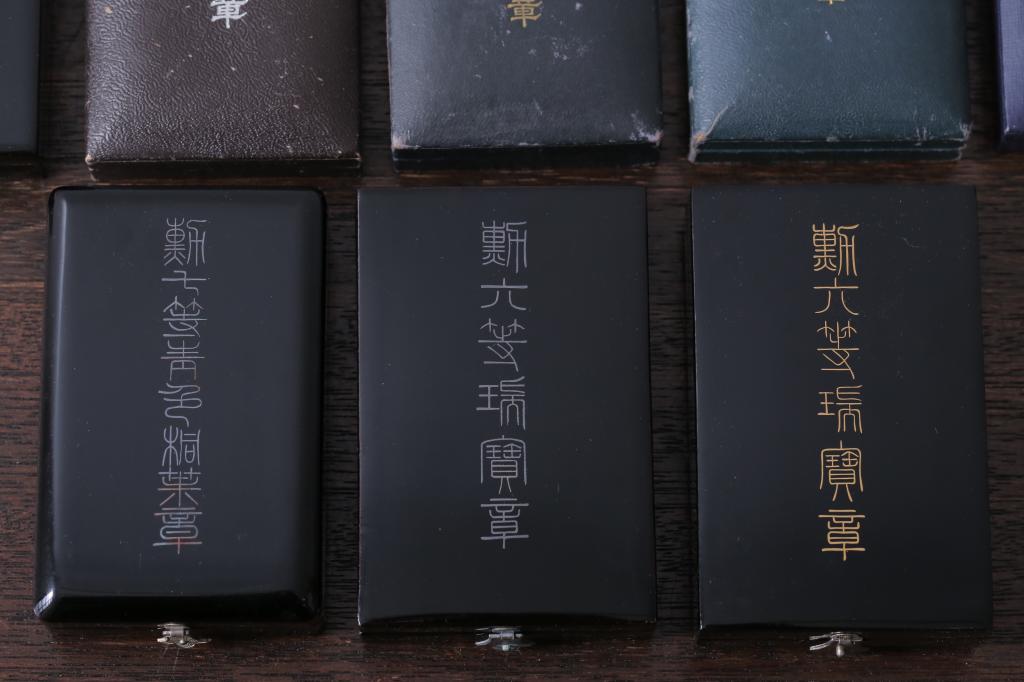 章
章
章
勲七等青色桐葉章
勲六等瑞寶章
勲六等瑞寶章